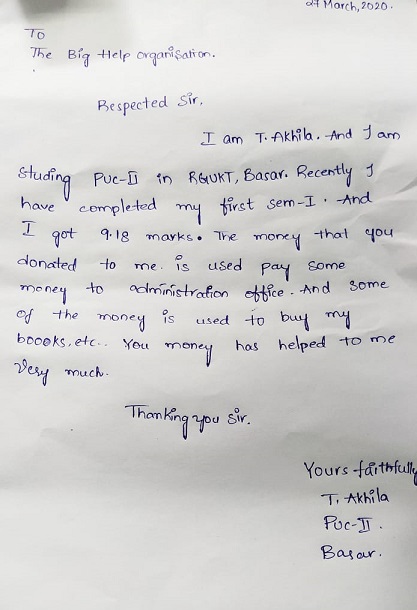 27 March, 2020.
To
The Big Help organisation.
Respected Sir,
I am T. Akhila. And I am
studing PUC-II in RGUKT, Basar. Recently I
have completed my first sem-I. And
I got 9.18 marks. The money that you
donated to me is used pay some
money to administration office. And some
of the money is used to buy my
boooks, etc.. You money has helped to me
very much.
Thanking you Sir.
Yours faithfully
T. Akhila
PUC-II.
Basar.